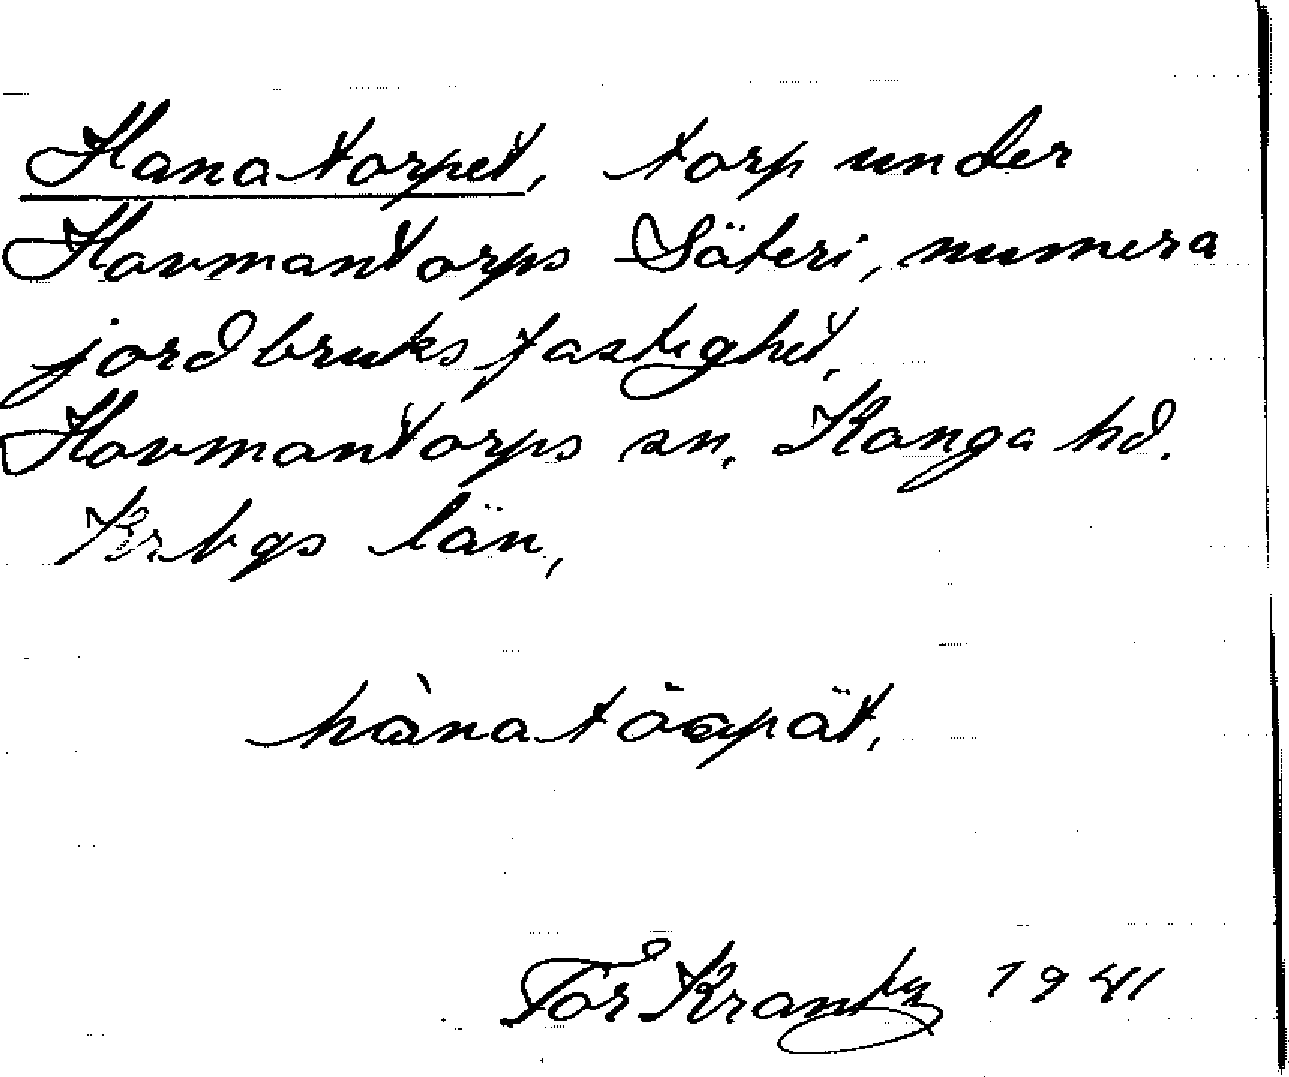 Hanatorpet, torp under
Hovmantorps Säteri, numera
jordbruksfastighet,
Hovmantorps sn. Konga hd.
Krbgs län,
hànatåapät,
Tor Krantz 1941